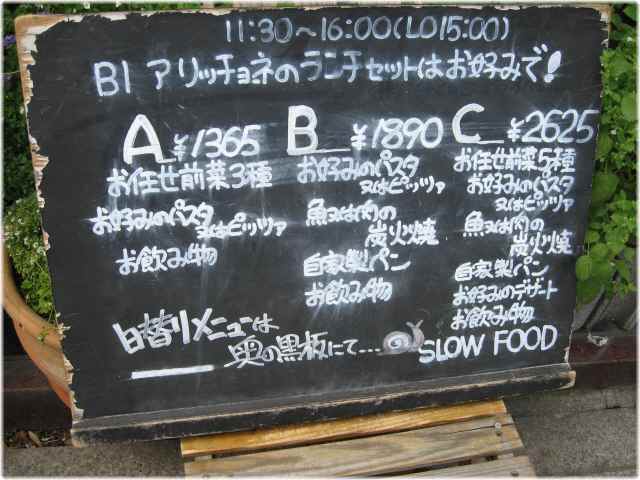 11:30〜16:00(LO15:00)
B1 アリッチョネのランチセットはお好みで!
A ¥1365
お任せ前菜3種
お好みのパスタ
又はピッツァ
お飲み物
B ¥1890
お好みのパスタ
又はピッツァ
魚又は肉の
炭火焼
自家製パン
お飲み物
C ¥2625
お任せ前菜5種
お好みのパスタ
又はピッツァ
魚又は肉の
炭火焼
自家製パン
お好みのデザート
お飲み物
日替りメニューは
奥の黒板にて...
SLOW FOOD